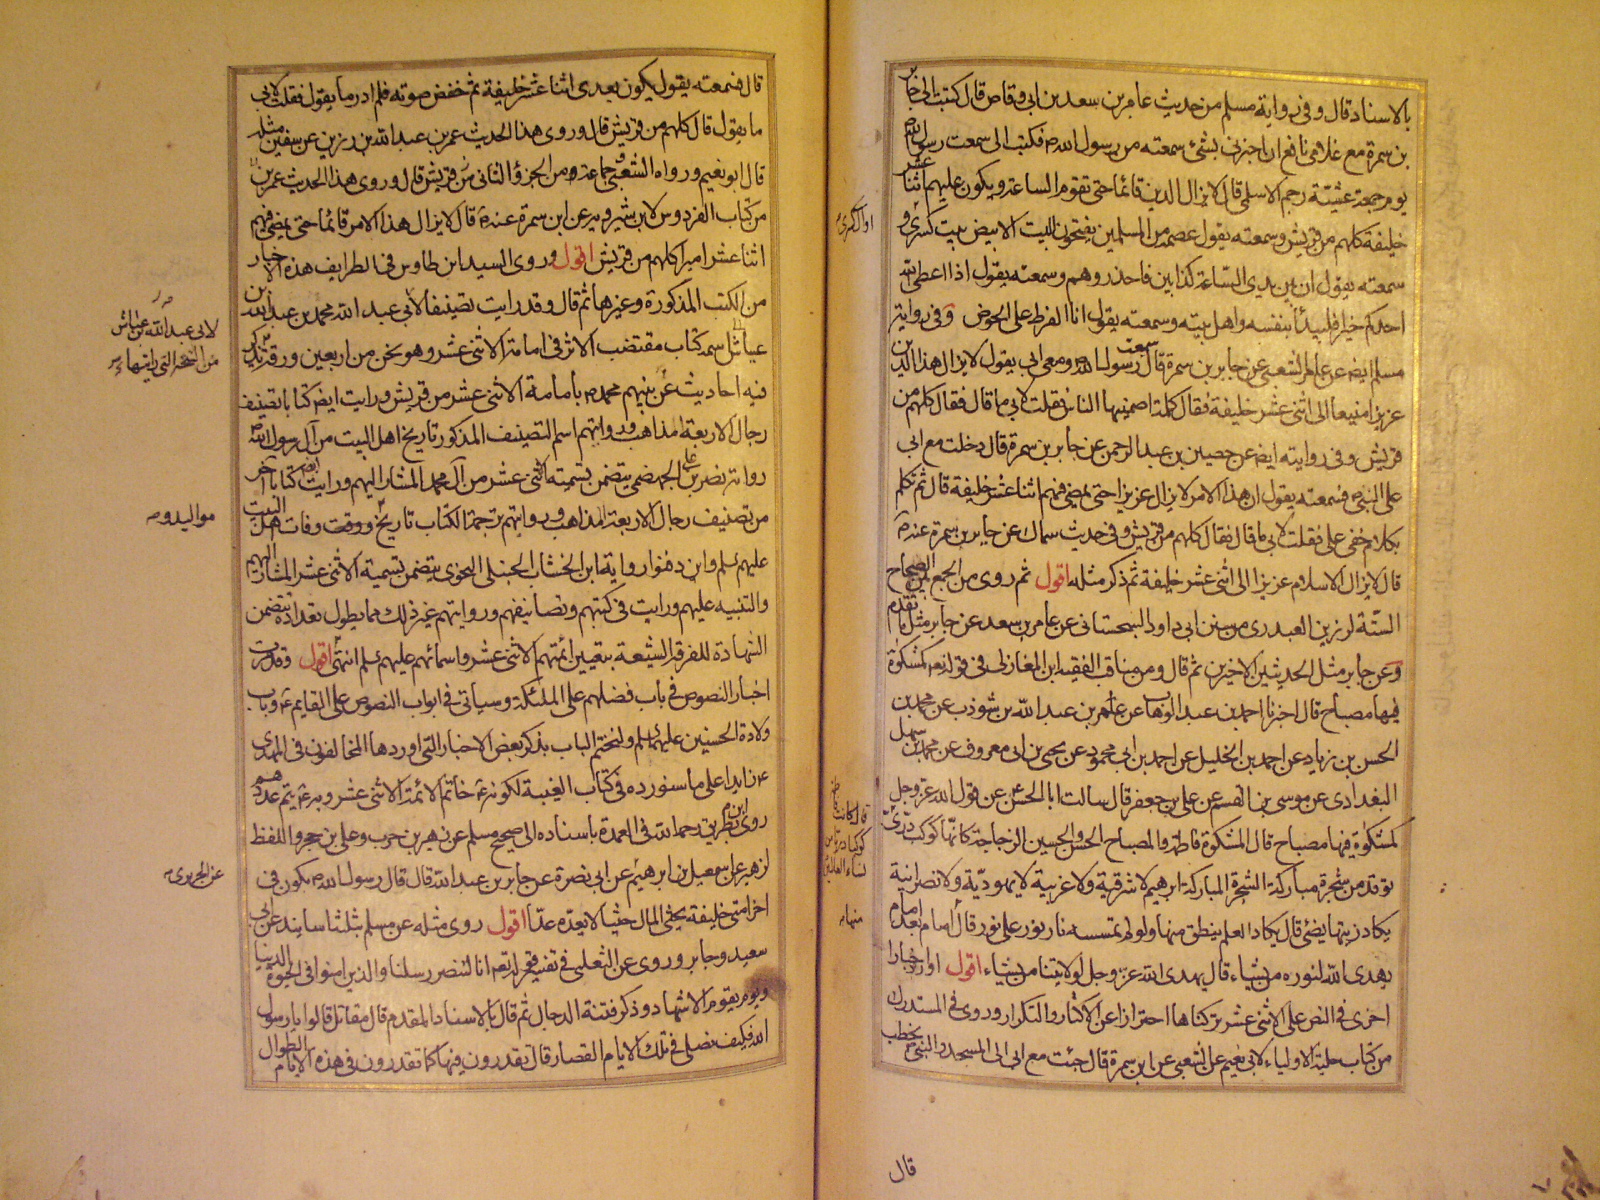 بالاسناد قال وفى رواية مسلم من حديث عامر بن سعد بن ابى وقاص قال كتبت الى جابر
بن سمرة مع غلامى نافع ان اخبرنى بشئ سمعته من رسول الله ص فكتب الى سمعت رسول الله
يوم جمعة عشيّة رجم الاسلمى قال لا يزال الدين قائما حتى تقوم الساعة ويكون عليهم اثنا عشر
خليفة كلهم من قريش وسمعته يقول عصيبة من المسلمين يفتحون البيت الابيض بيت كسرى و
سمعته يقول ان بين يدى السّاعة كذابين فاحذروهم وسمعته يقول اذا اعطى الله
احدكم خيرا فليبدأ بنفسه واهل بيته وسمعته يقول انا الفرط على الحوض وفى رواية
مسلم ايضه عن عامر الشعبى عن جابر بن سمرة قال سمعت رسول الله ومعى ابى يقول لا يزال هذا الدين
عزيزا منيعا الى اثنى عشر خليفة فقال كلمة اصمنيها الناس فقلت لابى ما قال فقال كلهم من
قريش وفى روايته ايضه عن حصين بن عبد الرحمن عن جابر بن سمرة قال دخلت مع ابى
على النبى ص فسمعته يقول ان هذا الامر لا يزال عزيزا حتى يمضى فيهم اثنا عشر خليفة قال ثم تكلم
بكلام خفى على فقلت لابى ما قال فقال كلهم من قريش وفى حديث سماك عن جابر بن سمرة عنه ص
قال لا يزال الاسلام عزيزا الى اثنى عشر خليفة ثم ذكر مثله اقول ثم روى من الجمع بين الصحاح
الستّة لرزين العبدرى من سنن ابى داود السجستانى عن عامر بن سعد عن جابر مثل ما تقدم
وعن جابر مثل الحديثين الاخيرين ثم قال ومن مناقب الفقيه ابن المغازلى فى قوله تعه كمشكوة
فيها مصباح قال اخبرنا احمد بن عبد الوهاب عن عمر بن عبد الله بن شوذب عن محمد بن
الحسن بن زياد عن احمد بن الخليل عن احمد بن ابى محمود عن يحيى بن ابى معروف عن محمد بن سهل
البغدادى عن موسى بن القسم عن على بن جعفر قال سالت ابا الحسن ع عن قول الله عز وجل
كمشكوة فيها مصباح قال المشكوة فاطمة والمصباح الحسن والحسين الزجاجة كانّها كوكب درّى
توقد من شجرة مباركة الشجرة المباركة ابرهيم لا شرقية ولا غربية لا يهوديّة ولا نصرانية
يكاد زيتها يضئ قال يكاد العلم ينطق منها ولو لم تمسسه نار نور على نور قال امام بعد امام
يهدى الله لنوره من يشاء قال يهدى الله عز وجل لولايتنا من يشاء اقول اورد اخبارا
اخرى فى النص على الاثنى عشر تركناها احترازا عن الاكثار والتكرار وروى فى المستدرك
من كتاب حلية الاولياء لابى نعيم عن الشعبى عن ابن سمرة قال جئت مع ابى الى المسجد والنبى ص يخطب
قال
او آل كسرى
قال كانت فاطمة
كوكبا دريا من
نساء العالمين
منها
قال فسمعته يقول يكون بعدى اثنا عشر خليفة ثم خفض صوته فلم ادر ما يقول فقلت لابى
ما يقول قال كلهم من قريش قال وروى هذا الحديث عمر بن عبد الله بن رزين عن سفين مثله
قال ابو نعيم ورواه الشعبى وجماعة ومن الجزؤ الثانى من قريش قال وروى هذا الحديث عمر بن
من كتاب الفردوس لابن شيرويه عن ابن سمرة عنه ع قال لا يزال هذا الامر قائما حتى يمضى فيهم
اثنا عشر اميرا كلهم من قريش اقول وروى السيد ابن طاوس فى الطرايف هذه الاخبار
من الكتب المذكورة وغيرها ثم قال وقد رايت تصنيفا لابى عبد الله محمد بن عبد الله بن
عياش سمه كتاب مقتضب الاثر فى امامة الاثنى عشر وهو نحو من اربعين ورقة يذكر
فيه احاديث عن نبيهم محمد ص بامامة الاثنى عشر من قريش ورايت ايضه كتابا تصنيف
رجال الاربعة المذاهب ورواتهم اسم التصنيف المذكور تاريخ اهل البيت من آل رسول الله
رواية نصر بن على الجهضمى يتضمن تسمية الاثنى عشر من آل محمد المشار اليهم ورايت ايضه كتابا آخر
من تصنيف رجال الاربعة المذاهب ورواتهم ترجمة الكتاب تاريخ ووقت وفات اهل البيت
عليهم سلم واين دفنوا رواية ابن الخشاب الحنبلى النحوى يتضمن تسمية الاثنى عشر المشار اليهم
والتنبيه عليهم ورايت فى كتبهم وتصانيفهم ورواياتهم غير ذلك مما يطول تعداده تتضمن
الشهادة للفرقة الشيعة بتعيين ائمّتهم الاثنى عشر واسمائهم عليهم سلم انتهى اقول وقد مرت
اخبار النصوص فى باب فضلهم على الملئكة وسيأتى فى ابواب النصوص على القايم ع وباب
ولادة الحسنين عليهما سلم ولنختم الباب بذكر بعض الاخبار التى اوردها المخالفون فى المهدى
ع زايدا على ما سنورده فى كتاب الغيبة لكونه ع خاتم الائمة الاثنى عشر وبه ع يتم عددهم
روى ابن بطريق رحمه الله فى العمدة باسناده الى صحيح مسلم عن زهير بن حرب وعلى بن حجر واللفظ
لزهير عن اسمعيل بن ابرهيم عن ابى نضرة عن جابر بن عبد الله قال قال رسول الله ص يكون فى
اخر امتى خليفة يحثى المال حثيا لا يعدّه عدّا اقول روى مثله عن مسلم بثلثة اسانيد عن ابى
سعيد وجابر وروى عن الثعلبى فى تفسير قوله تعه انا لننصر رسلنا والذين امنوا فى الحيوة الدنيا
ويوم يقوم الاشهاد وذكر فتنة الدجال ثم قال بالاسناد المقدم قال مقاتل قالوا يا رسول
الله فكيف نصلى فى تلك الايام القصار قال تقدرون فيها كما تقدرون فى هذه الايام الطوال
لابى عبد الله عن عياش
من النسخة التى رايتها
مواليد و
عن الجريرى